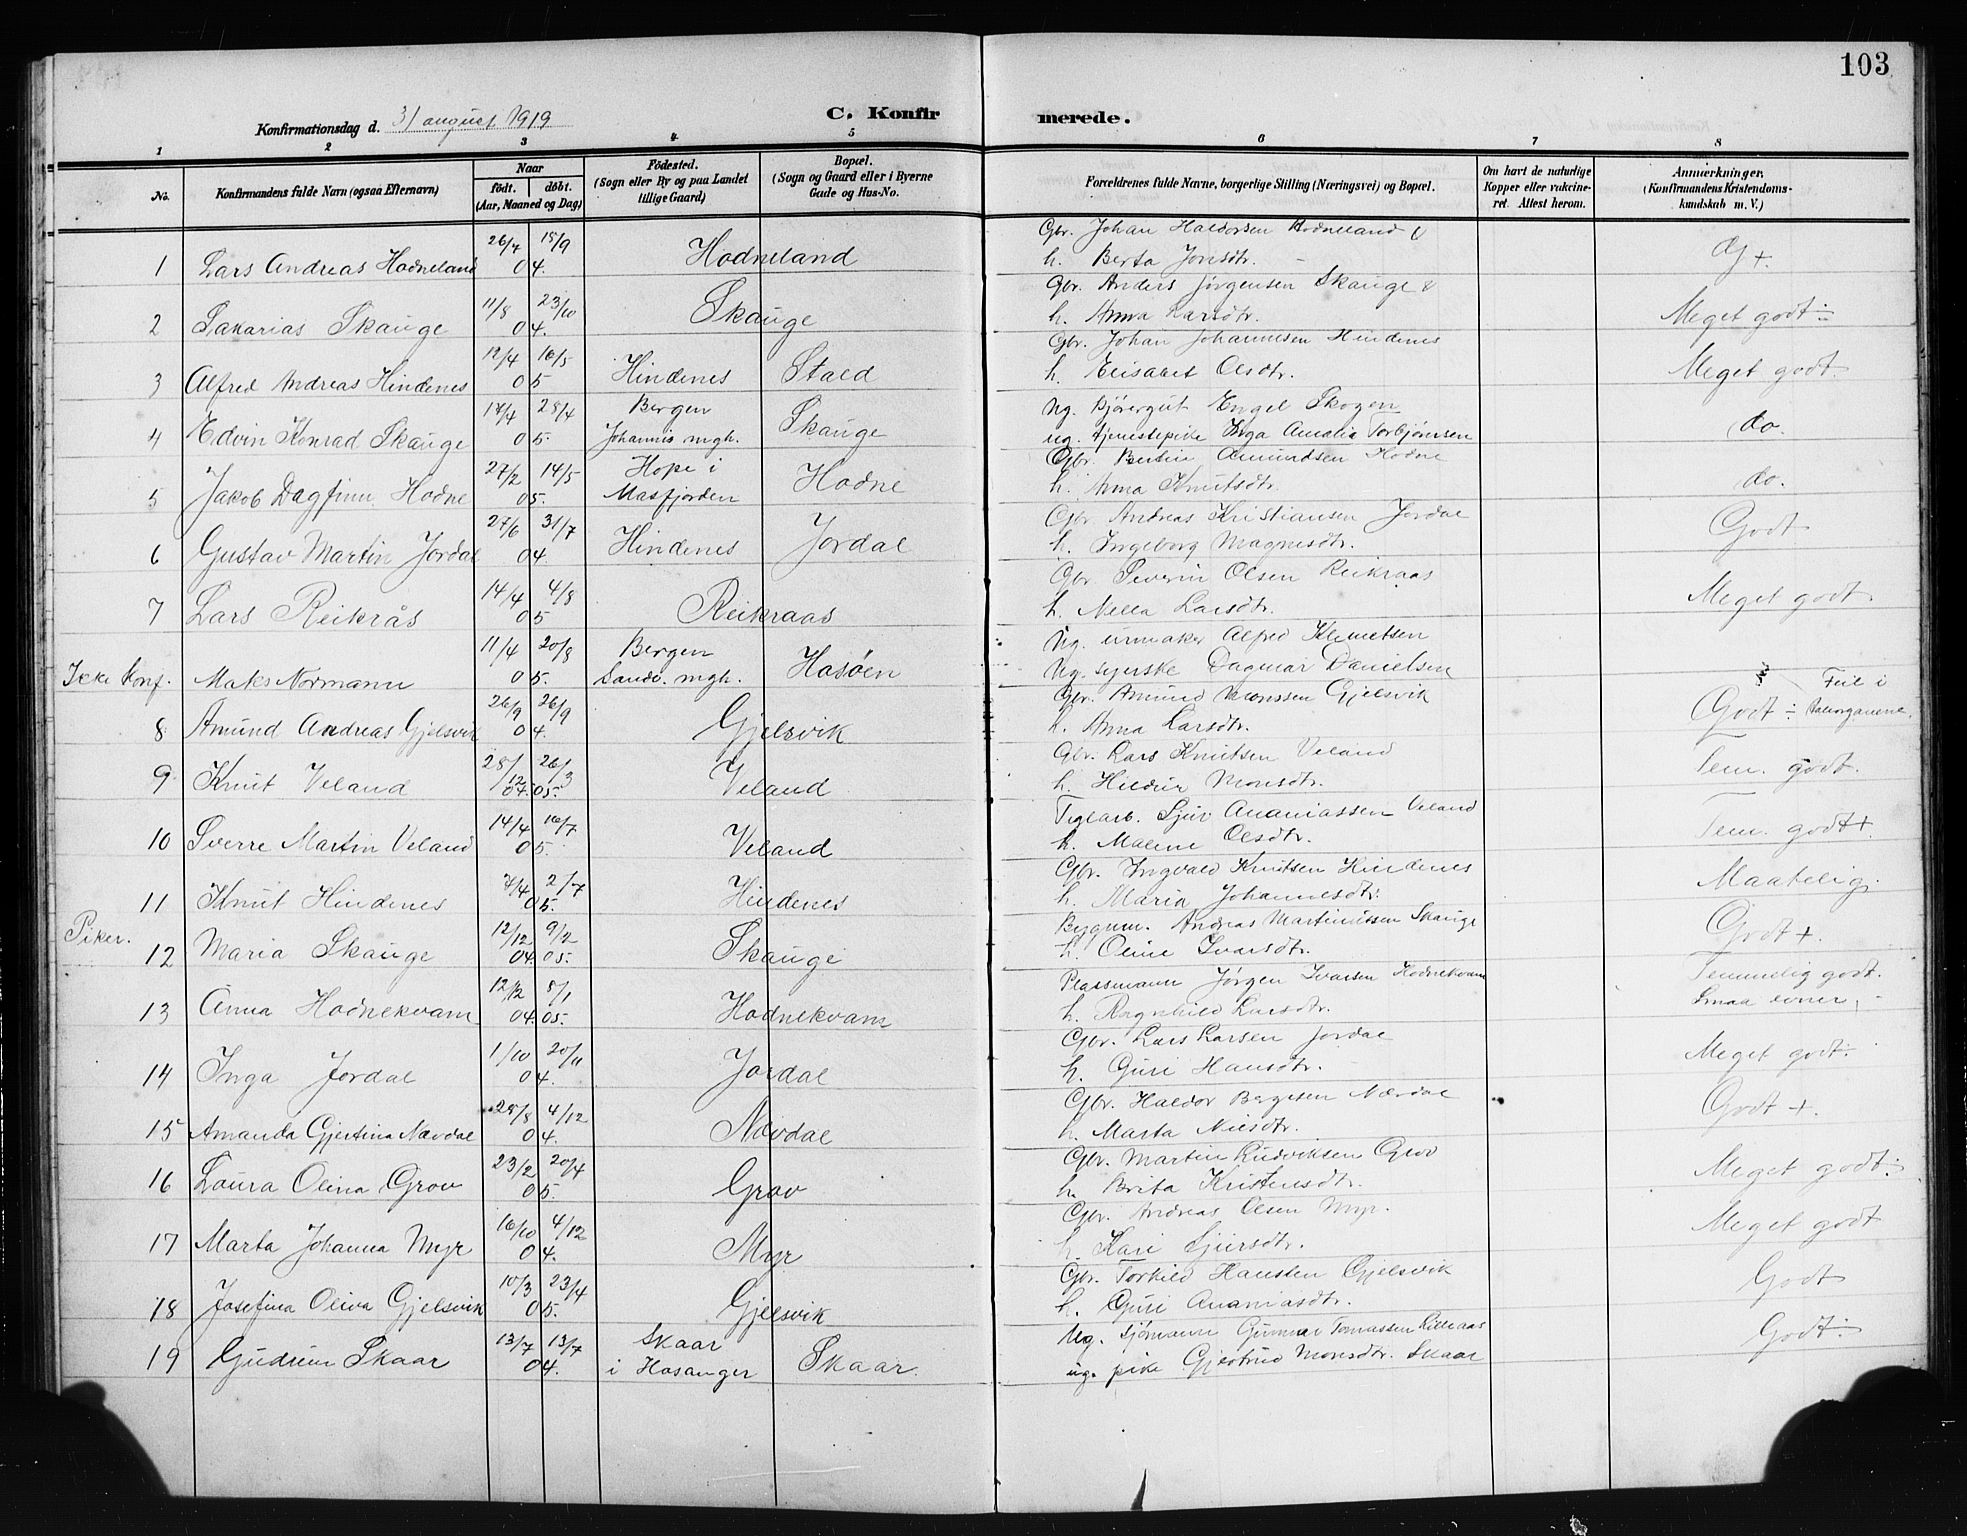 103
Konfirmationsdag d. 31 august 1919
C. Konfirmerede.
1 2 3 4 5 6 7 8
No.
Konfirmandens fulde Navn (ogsaa Efternavn)
Naar
födt. döbt.
(Aar, Maaned og Dag)
Födested.
(Sogn eller By og paa Landet tillige Gaard)
Bopæl.
(Sogn og Gaard eller i Byerne Gade og Hus-No.
Forældrenes fulde Navne, borgerlige Stilling (Næringsvei) og Bopæl.
Om havt de naturlige Kopper eller vakcineret. Attest herom.
Anmærkninger,
(Konfirmandens Kristendomskundskab m. V.)
1 Lars Andreas Hodneland 26/7 15/9 04. Hodneland
Gbr. Johan Haldorsen Hodneland &
h. Berta Jonsdtr.
2 Sakarias Skauge 11/8 23/10 04. Skauge
Gbr. Anders Jørgensen Skauge &
h. Anna Larsdtr.
Meget godt÷
3 Alfred Andreas Hindenes 12/4 16/5 05 Hindenes Stald
Gbr. Johan Johannesen Hindenes
h. Elisabet Olsdtr.
Meget godt.
4 Edvin Konrad Skauge 17/4 28/4 05. Bergen Johannis mgh. Skauge
Ug. Engel Skogen
ug. tjenestepike Inga Amalia Torbjørnsen
do.
5 Jakob Dagfinn Hodne 27/2 14/5 05. Hope i Masfjorden Hodne
Gbr. Bertin Amundsen Hodne
h. Anna Knutsdtr.
do.
6 Gustav Martin Jordal 27/6 31/7 04. Hindenes Jordal
Gbr. Andreas Kristiansen Jordal
h. Ingeborg Magnesdtr.
Godt
7 Lars Reikrås 14/4 4/8 05 Reikraas
Gbr. Severin Olsen Reikraas
h. Nella Larsdtr.
Meget godt.
Ikke konf. Maks Normann 11/4 20/8 05. Bergen Sandv. mgh. Hosøen
Ug. urmaker Alfred Klemetsen
Ug. syerske Dagmar Danielsen
8 Amund Andreas Gjelsvik 26/9 26/9 04. Gjelsvik
Gbr. Amund Monssen Gjelsvik
h. Anna Larsdtr.
Godt ÷ Feil i Taleorganene.
9 Knut Veland 28/12 26/3 04. 05. Veland
Gbr. Lars Knutsen Veland
h. Hildur Monsdtr.
Tem. godt.
10 Sverre Martin Veland 14/4 16/7 05. Veland
Teglarb. Sjur Ananiassen Veland
h. Malene Olsdtr.
Tem. godt+.
11 Knut Hindenes 7/4 2/7 05. Hindenes
Gbr. Ingvald Knutsen Hindenes
h. Maria Johannesdtr.
Maatelig.
Piker.
12 Maria Skauge 12/12 9/2 04. 05. Skauge
Bygnm. Andreas Martinussen Skauge
h. Oline Ivarsdtr.
Godt+.
13 Anna Hodnekvam 12/12 8/1 04. 05. Hodnekvam
Plassmann Jørgen Ivarsen Hodnekvam
h. Ragnhild Larsdtr.
Temmelig godt.
Smaa evner.
14 Inga Jordal 1/10 20/11 04. Jordal
Gbr. Lars Larsen Jordal
h. Guri Hansdtr.
Meget godt÷
15 Amanda Gjertina Nævdal 28/8 4/12 04. Nævdal
Gbr. Haldor Børgesen Nævdal
h. Marta Nilsdtr.
Godt +.
16 Laura Olina Grov 23/2 20/4 05. Grov
Gbr. Martin Ludviksen Grov
h. Brita Kristensdtr.
Meget godt÷
17 Marta Johanna Myr 16/10 4/12 04. Myr
Gbr. Andreas Olsen Myr.
h. Kari Sjursdtr.
Meget godt
18 Josefina Oliva Gjelsvik 10/3 23/4 05. Gjelsvik
Gbr. Torkild Hansten Gjelsvik
h. Guri Ananiasdtr.
Godt
19 Gudrun Skaar 13/7 13/7 04. Skaar i Hosanger Skaar.
Ug. sjømann Gunnar Tomassen Lilleaas
ug. pike Gjertrud Monsdtr. Skaar
Godt÷